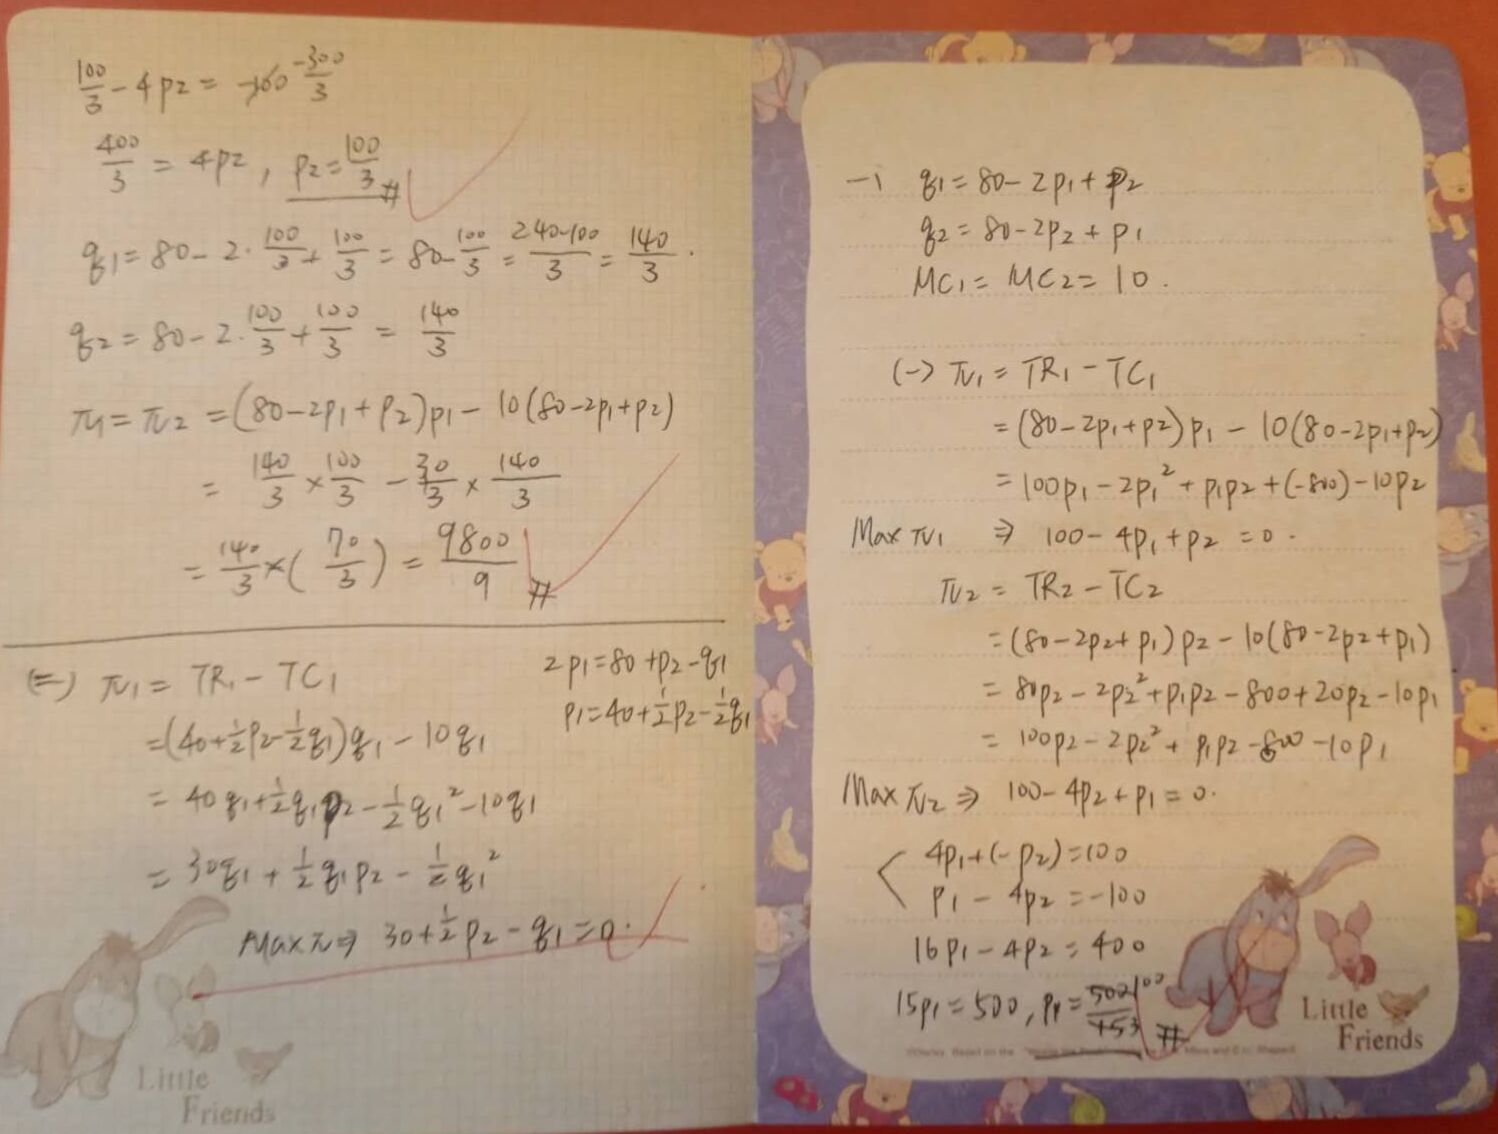 100/3 - 4p2 = -100 -300/3
400/3 = 4p2, p2 = 100/3 #
q1 = 80 - 2·100/3 + 100/3 = 80 - 100/3 = 240-100/3 = 140/3.
q2 = 80 - 2·100/3 + 100/3 = 140/3
π1 = π2 = (80-2p1+p2)p1 - 10(80-2p1+p2)
= 140/3 × 100/3 - 30/3 × 140/3
= 140/3 × (70/3) = 9800/9 #
(二) π1 = TR1 - TC1
2p1 = 80 + p2 - q1
p1 = 40 + 1/2p2 - 1/2q1
= (40 + 1/2p2 - 1/2q1)q1 - 10q1
= 40q1 + 1/2q1p2 - 1/2q1² - 10q1
= 30q1 + 1/2q1p2 - 1/2q1²
Max π ⇒ 30 + 1/2p2 - q1 = 0.
Little
Friends
一、 q1 = 80 - 2p1 + p2
q2 = 80 - 2p2 + p1
MC1 = MC2 = 10.
(一) π1 = TR1 - TC1
= (80-2p1+p2)p1 - 10(80-2p1+p2)
= 100p1 - 2p1² + p1p2 + (-800) - 10p2
Max π1 ⇒ 100 - 4p1 + p2 = 0.
π2 = TR2 - TC2
= (80-2p2+p1)p2 - 10(80-2p2+p1)
= 80p2 - 2p2² + p1p2 - 800 + 20p2 - 10p1
= 100p2 - 2p2² + p1p2 - 800 - 10p1
Max π2 ⇒ 100 - 4p2 + p1 = 0.
4p1 + (-p2) = 100
p1 - 4p2 = -100
16p1 - 4p2 = 400
15p1 = 500, p1 = 500 100/15 3 #
Little
Friends
©Disney. Based on the